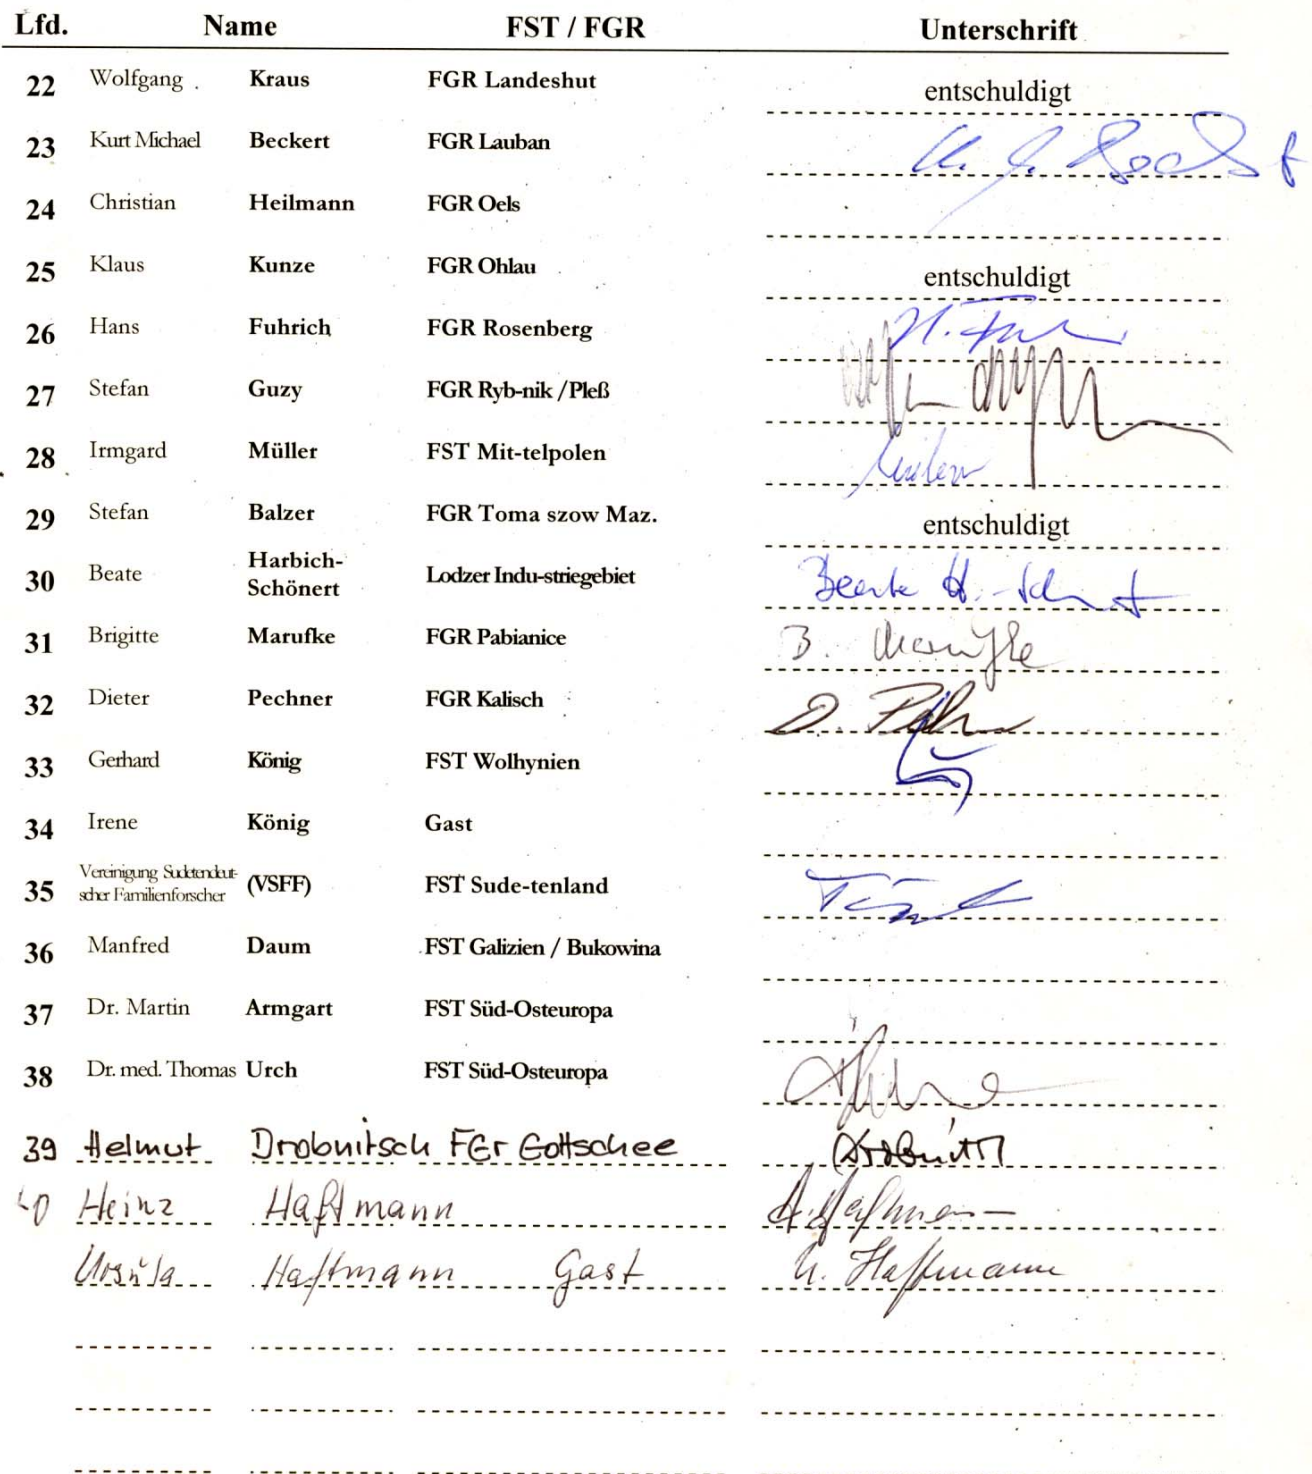 Lfd. Name FST / FGR Unterschrift
22 Wolfgang Kraus FGR Landeshut entschuldigt
23 Kurt Michael Beckert FGR Lauban
24 Christian Heilmann FGR Oels
25 Klaus Kunze FGR Ohlau entschuldigt
26 Hans Fuhrich FGR Rosenberg
27 Stefan Guzy FGR Ryb-nik /Pleß
28 Irmgard Müller FST Mit-telpolen
29 Stefan Balzer FGR Toma szow Maz. entschuldigt
30 Beate Harbich-
Schönert Lodzer Indu-striegebiet Beate H.-
31 Brigitte Marufke FGR Pabianice B. Marufke
32 Dieter Pechner FGR Kalisch
33 Gerhard König FST Wolhynien
34 Irene König Gast
35 Vereinigung Sudetendeut-
scher Familienforscher (VSFF) FST Sude-tenland
36 Manfred Daum FST Galizien / Bukowina
37 Dr. Martin Armgart FST Süd-Osteuropa
38 Dr. med. Thomas Urch FST Süd-Osteuropa
39 Helmut Drobnitsch FGr Gottschee
40 Heinz Haftmann
Ursula Haftmann Gast U. Haftmann